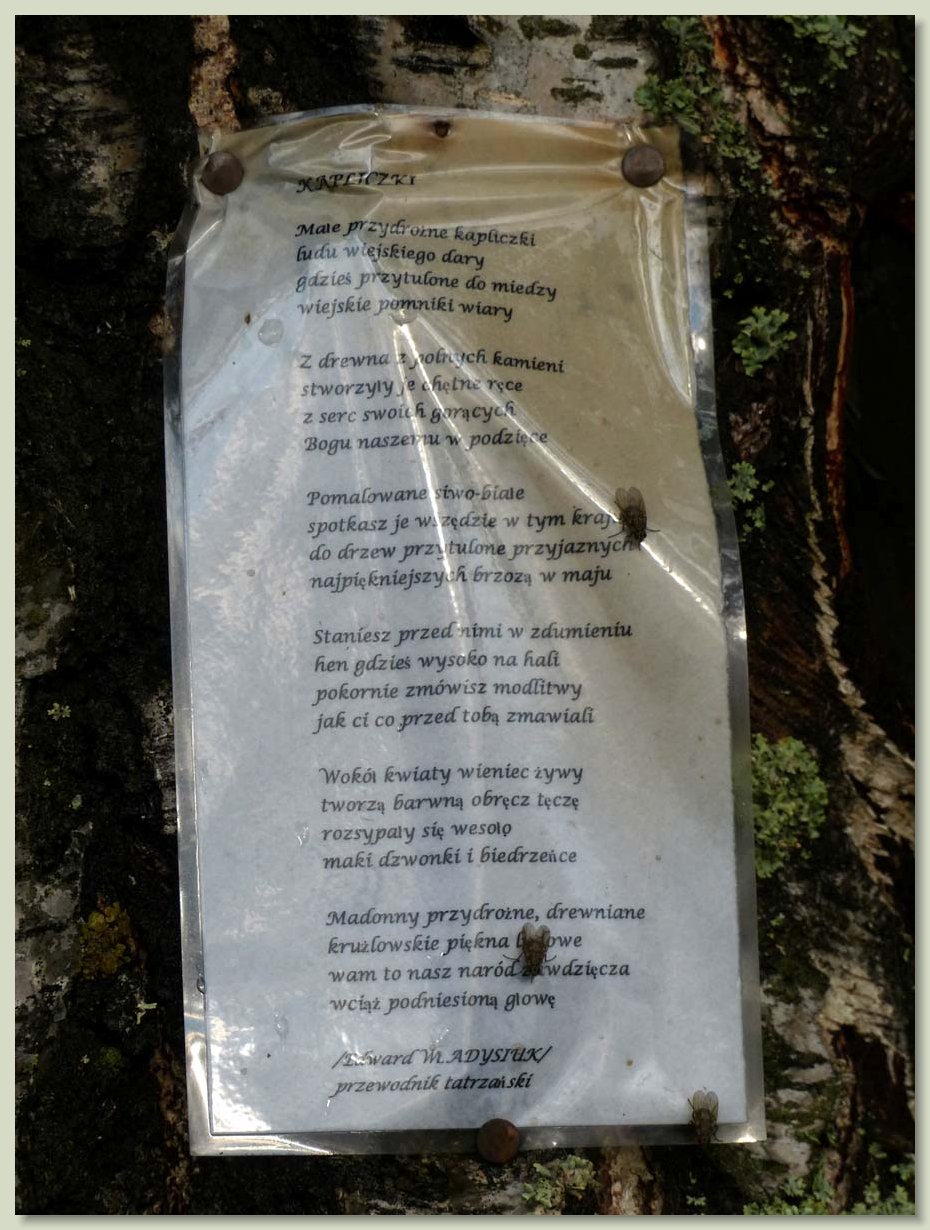 KAPLICZKI
Małe przydrożne kapliczki
ludu wiejskiego dary
gdzieś przytulone do miedzy
wiejskie pomniki wiary
Z drewna z polnych kamieni
stworzyły je chętne ręce
z serc swoich gorących
Bogu naszemu w podzięce
Pomalowane siwo-białe
spotkasz je wszędzie w tym kraju
do drzew przytulone przyjaznych
najpiękniejszych brzozą w maju
Staniesz przed nimi w zdumieniu
hen gdzieś wysoko na hali
pokornie zmówisz modlitwy
jak ci co przed tobą zmawiali
Wokół kwiaty wieniec żywy
tworzą barwną obręcz tęczę
rozsypały się wesoło
maki dzwonki i biedrzeńce
Madonny przydrożne, drewniane
krużlowskie piękna
wam to nasz naród zawdzięcza
wciąż podniesioną głowę
/Edward WŁADYSIUK/
przewodnik tatrzański